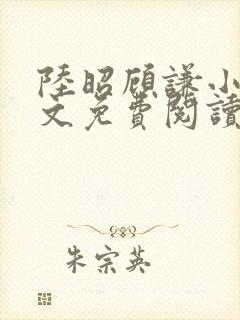 陸昭顾謙小
文免費閱讀
朱宗英